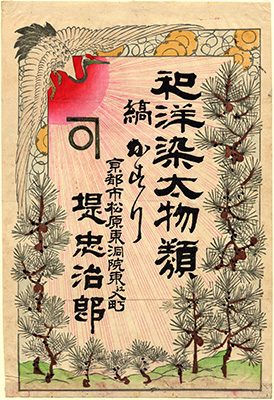 和洋染太物類
縞かすり
京都市松原東洞院東入町
堤忠治郎